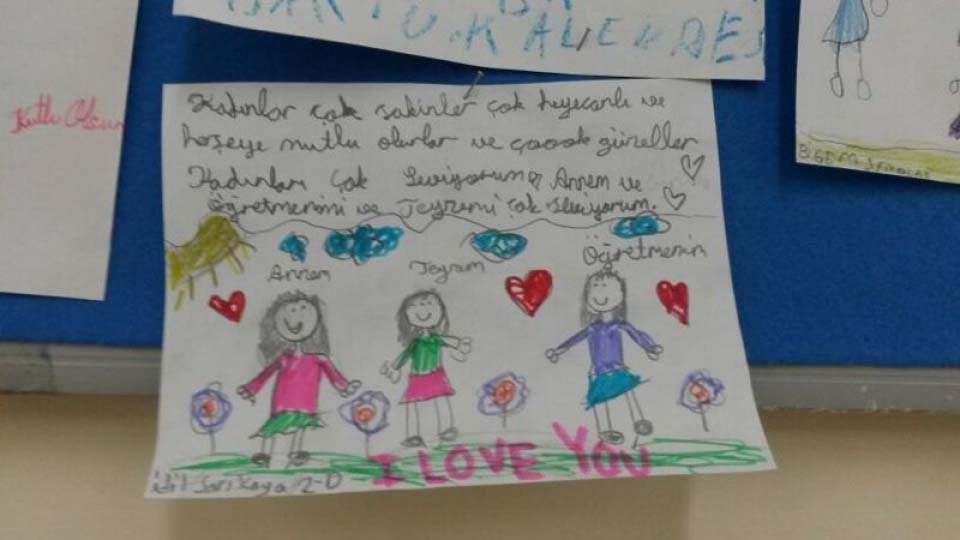 U.KALENDES
Kutlu Olsun
Kadınlar çok sakinler çok heyecanlı ve
herşeye mutlu olurlar ve çoook güzeller
Kadınları çok Seviyorum Annem ve
Öğretmenimi ve Teyzemi çok seviyorum.
Annem Teyzem Öğretmenim
I LOVE YOU
idil Sarıkaya 2-D